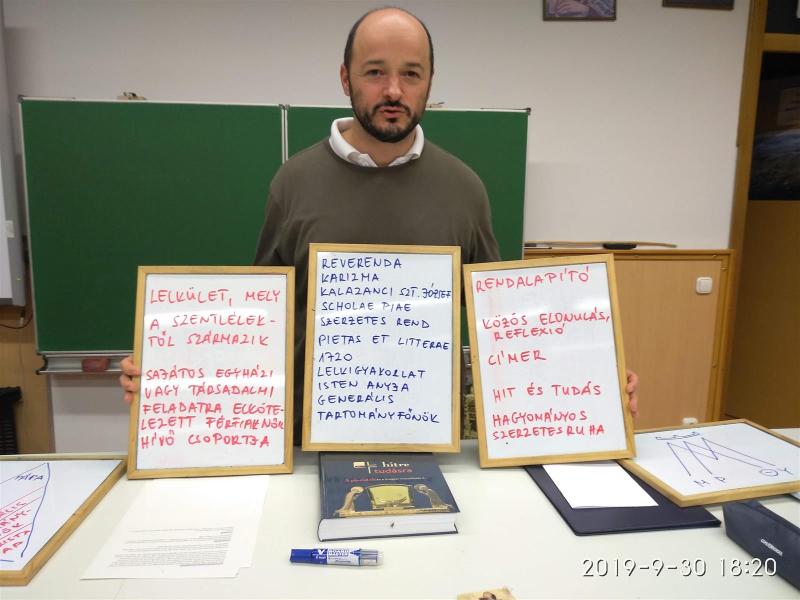 LELKÜLET, MELY
A SZENTLÉLEK-
TŐL SZÁRMAZIK
SAJÁTOS EGYHÁZI
VAGY TÁRSADALMI
FELADATRA ELKÖTE-
LEZETT FÉRFIAKNAK
HÍVŐ CSOPORTJA
REVERENDA
KARIZMA
KALAZANCI SZT. JÓZSEF
SCHOLAE PIAE
SZERZETES REND
PIETAS ET LITTERAE
1720
LELKIGYAKORLAT
ISTEN ANYJA
GENERÁLIS
TARTOMÁNYFŐNÖK
RENDALAPÍTÓ
KÖZÖS ELONULÁS,
REFLEXIÓ
CÍMER
HIT ÉS TUDÁS
HAGYOMÁNYOS
SZERZETESRUHA
hitre
tudásra
PÁPA
M P Y
2019-9-30 18:20